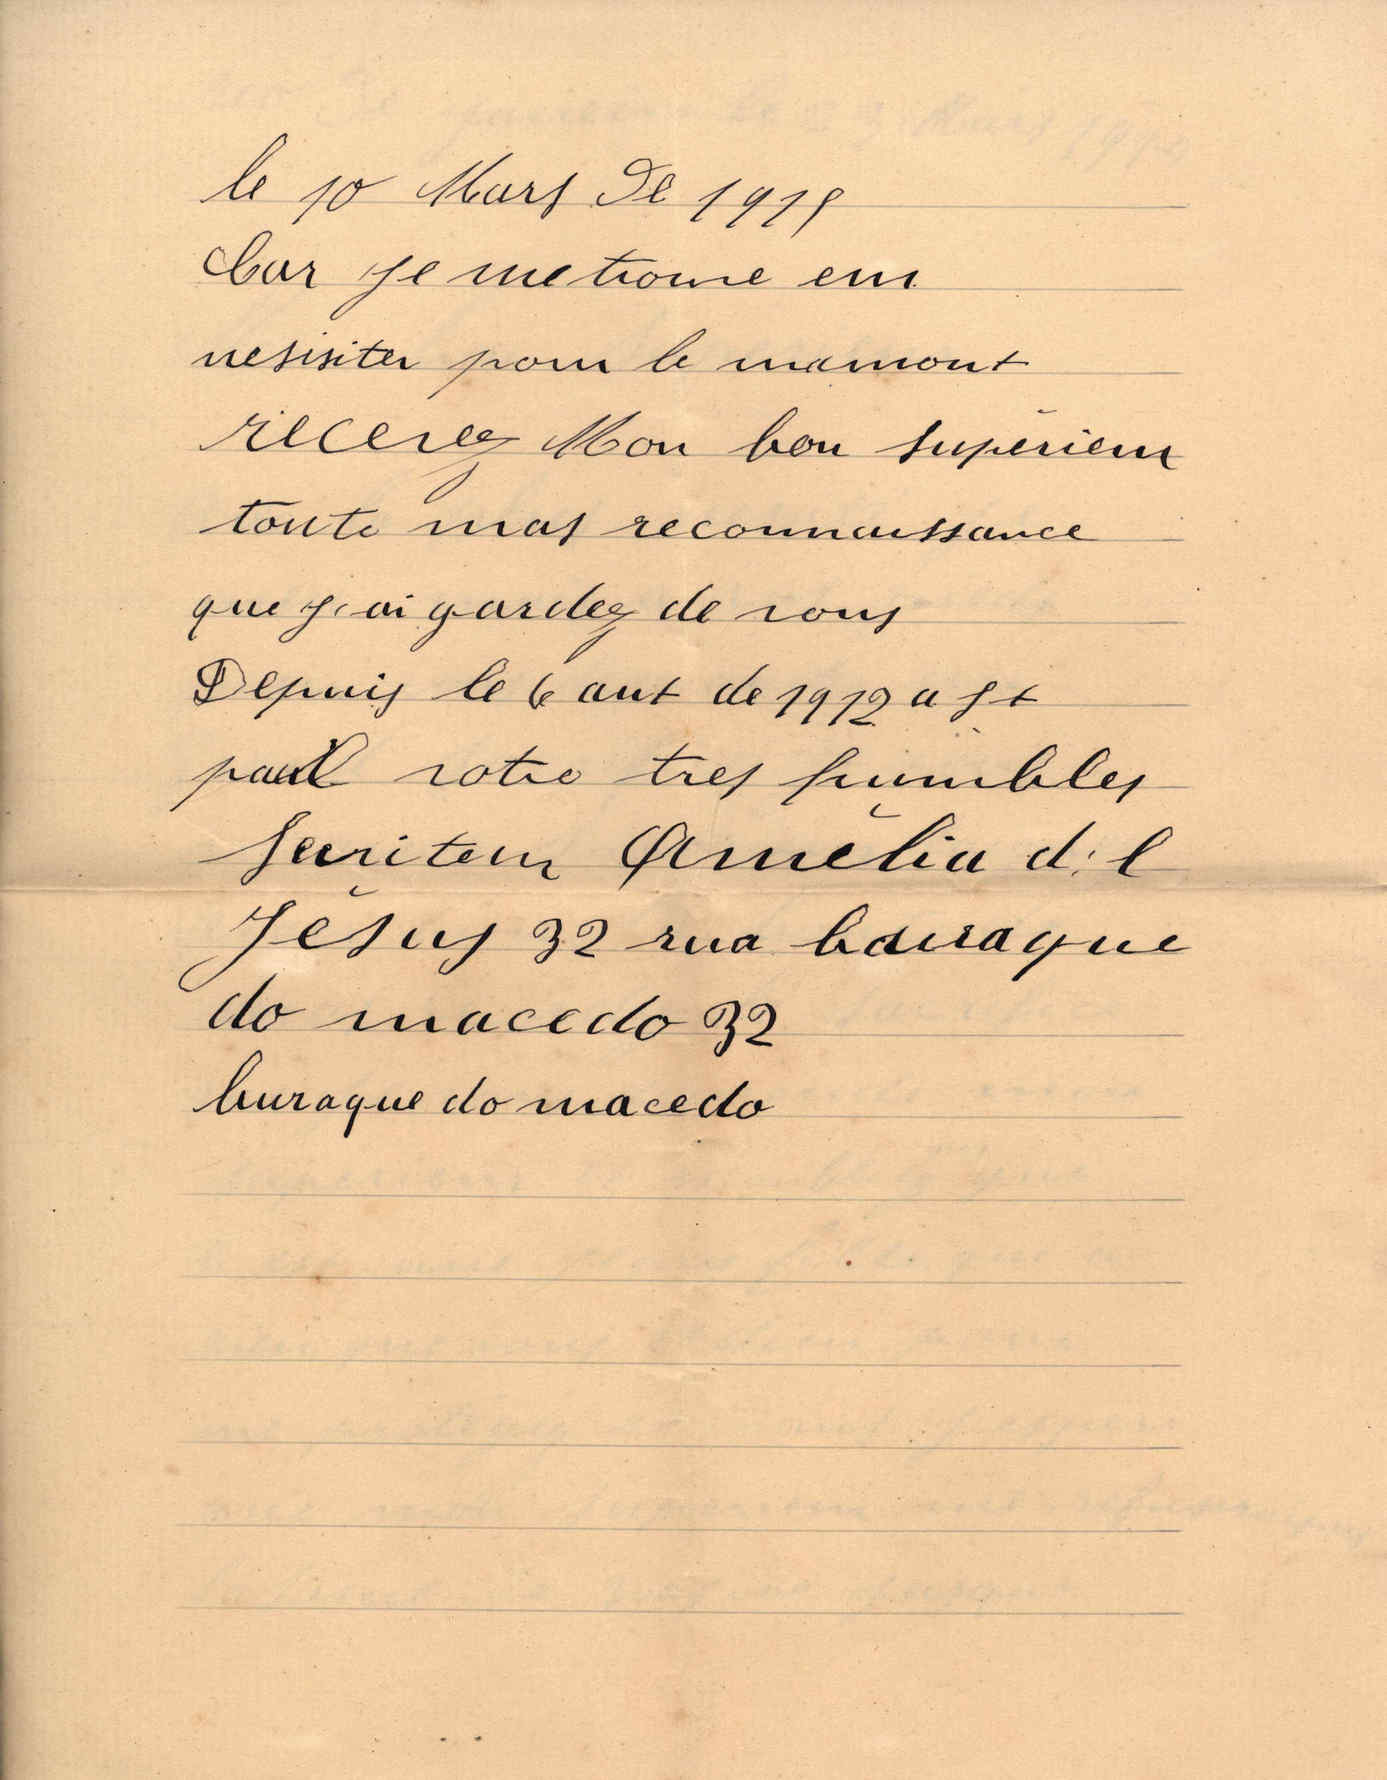 le 10 Mars De 1915
Car je me trouve em
nesisiter pour le mamont
recevez Mon bon superieur
toute mas reconnaissance
que j,ai gardez de vous
Depuis le 6 aut de 1912 a st
paul votre tres humbles
serviteur Amélia d: l
Jésus 32 rua bauraque
do macedo 32
buraque do macedo